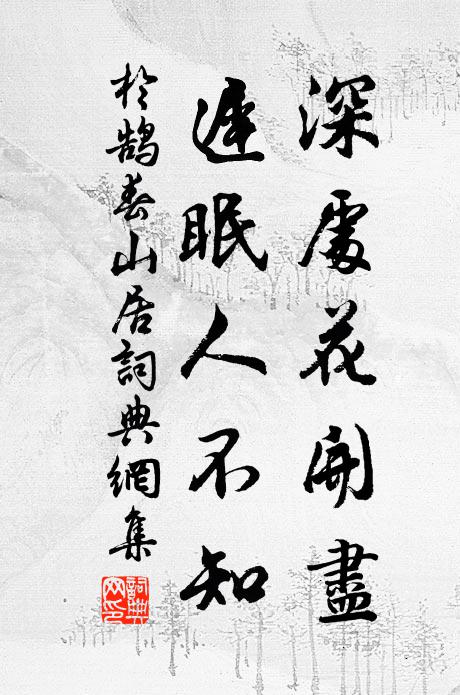 深處花開盡
遲眠人不知
於鵠春山居詞典網集
詞典網印